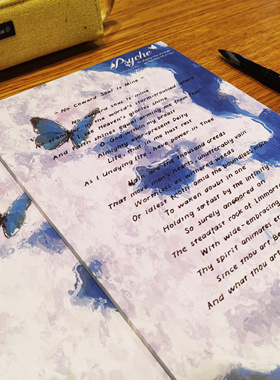 Psyche
- No Coward Soul Is Mine -
No coward soul is mine
the world's storm-troubled sphere
Heaven's glories shine
And Faith shines equal arming me from Fear
O God within my breast
Almighty ever-present Deity
Life, that in me hast rest
As I Undying life, have power in Thee
Vain are the thousand creeds
That move men's hearts unutterably vain
Worthless as withered weeds
Or idlest froth the boundless main
To waken doubt in one
Holding so fast by thy infinity
So surely anchored on
The steadfast rock of Immortality
With wide-embracing
Thy spirit animates
Since thou art Be
And what thou art